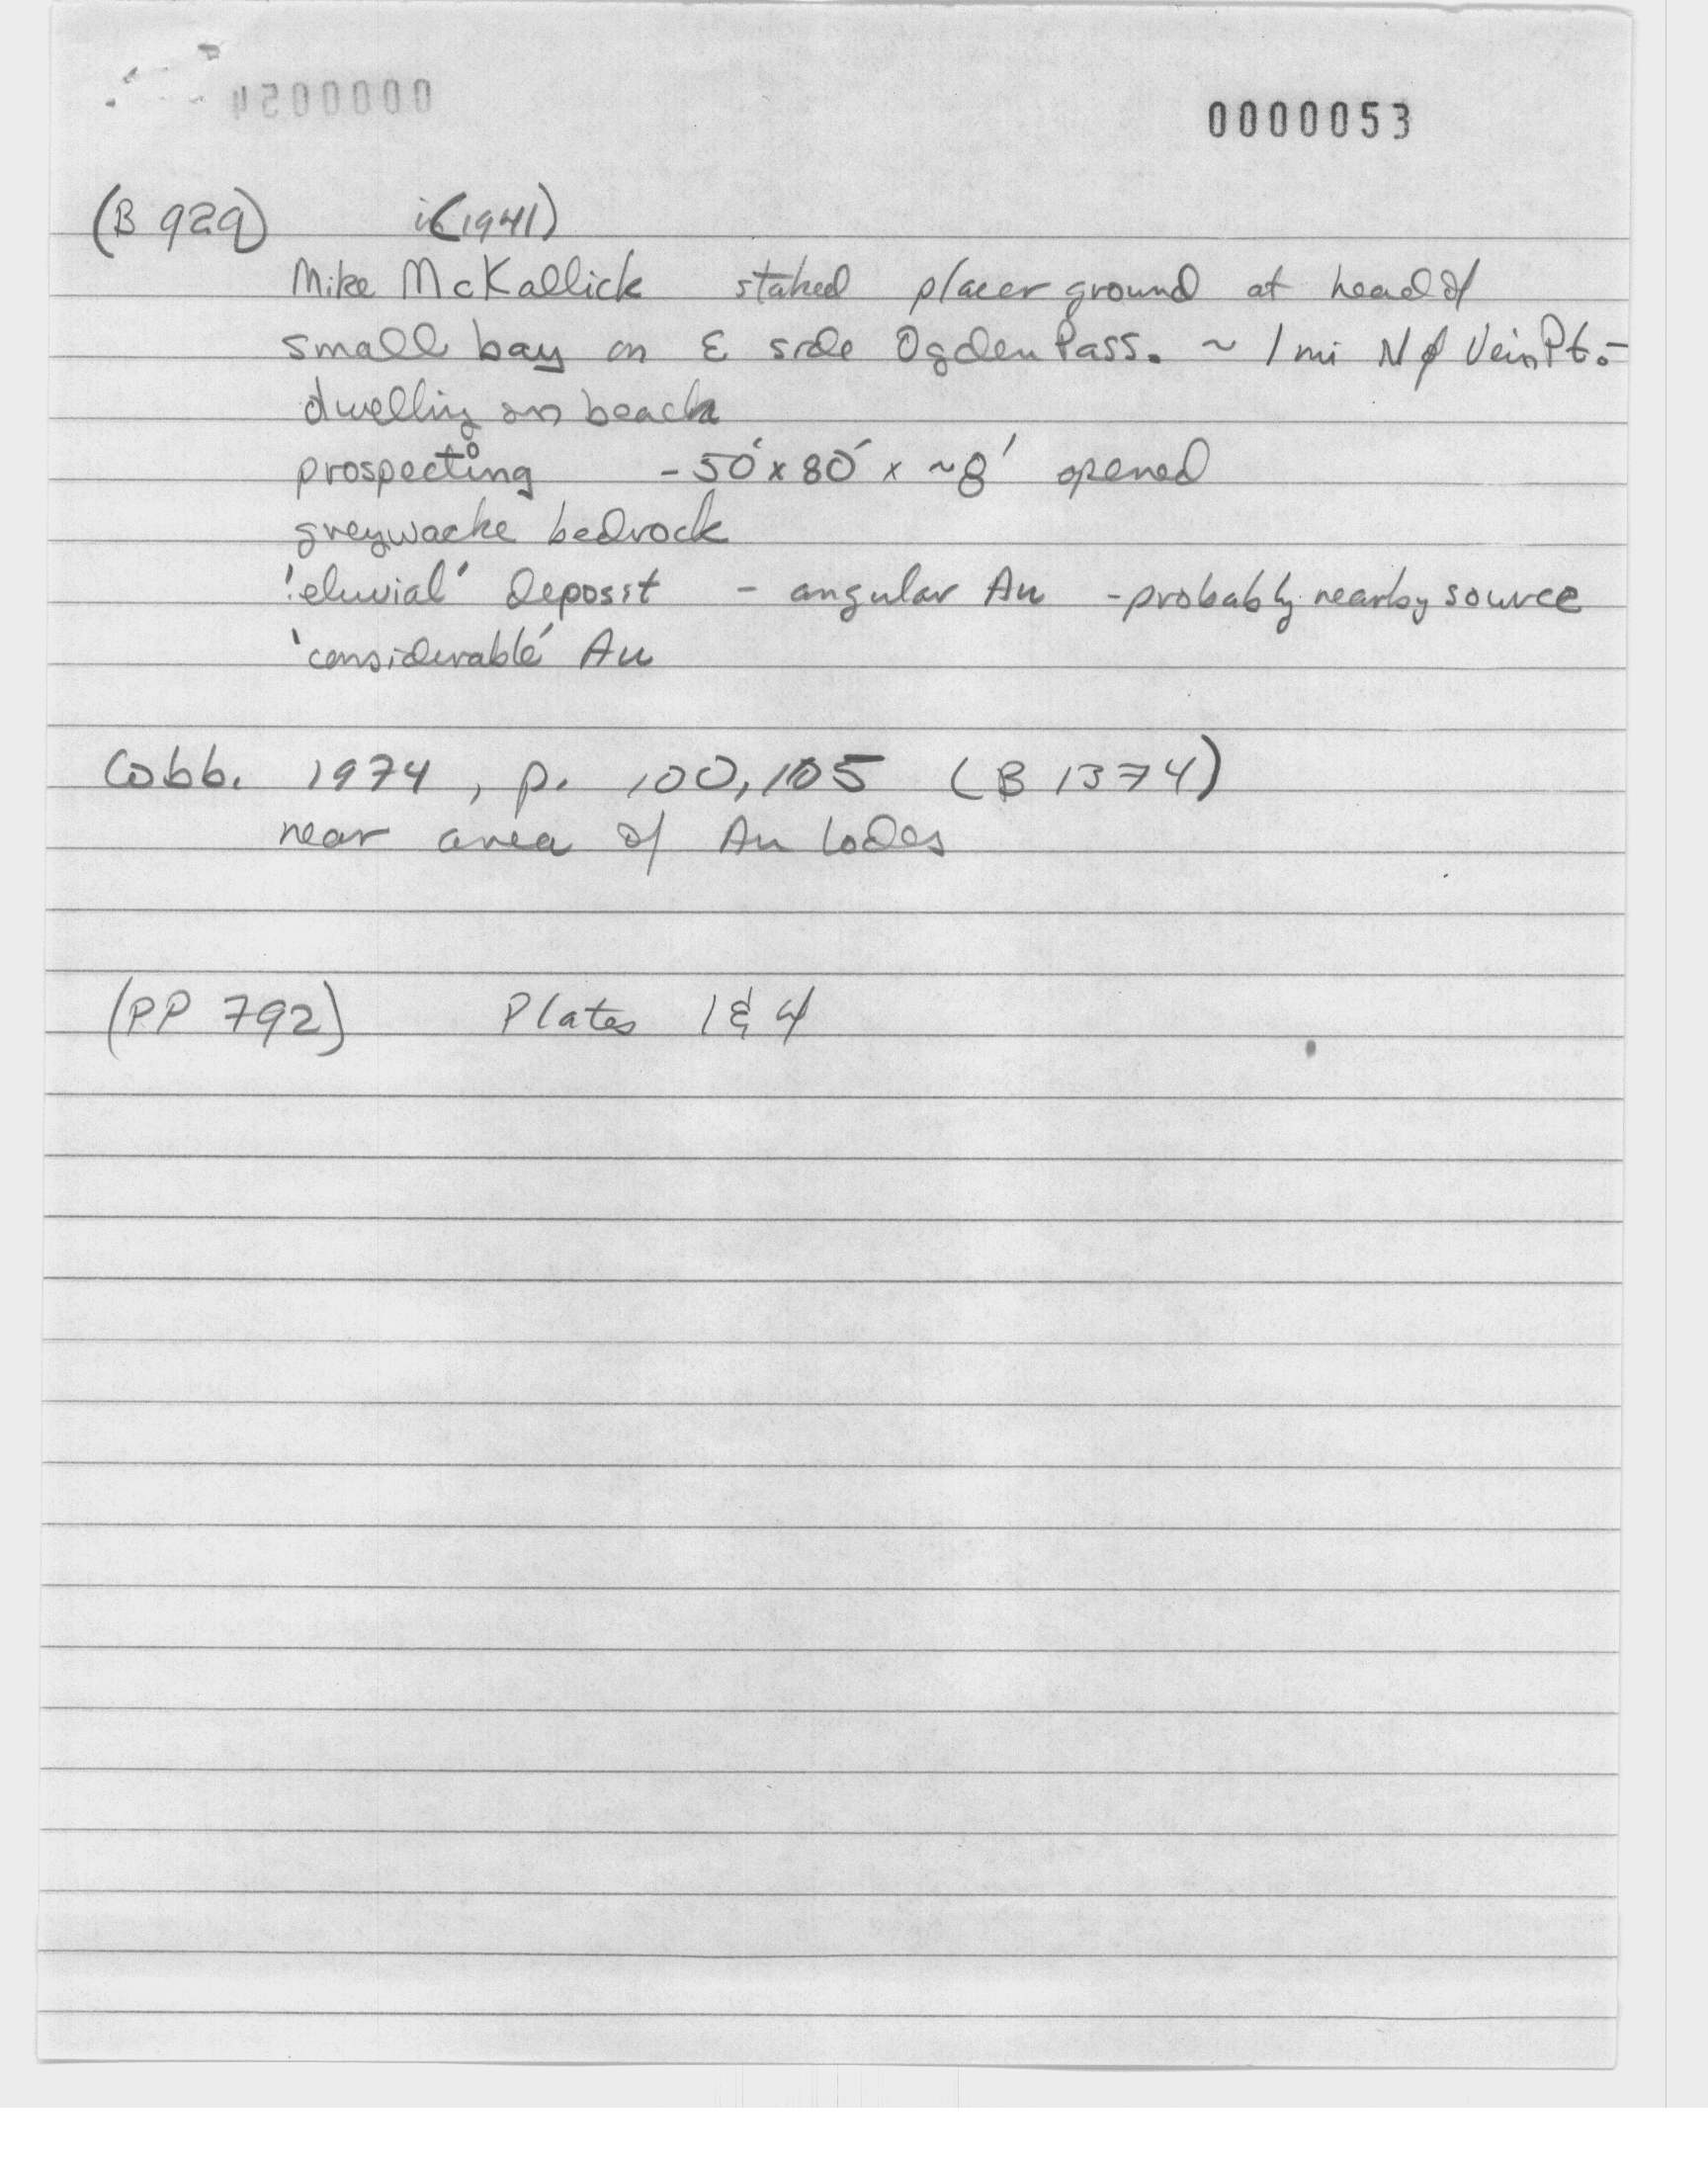 0000053
(B 929) (1941)
Mike McKallick staked placer ground at head of
small bay on E side Ogden Pass. ~ 1 mi N of Vein Pt. -
dwelling on beach
prospecting - 50' x 80' x ~8' opened
greywacke bedrock
'eluvial' deposit - angular Au - probably nearby source
'considerable' Au
Cobb. 1974, p. 100, 105 (B 1374)
near area of Au lodes
(PP 792) Plates 1 & 4